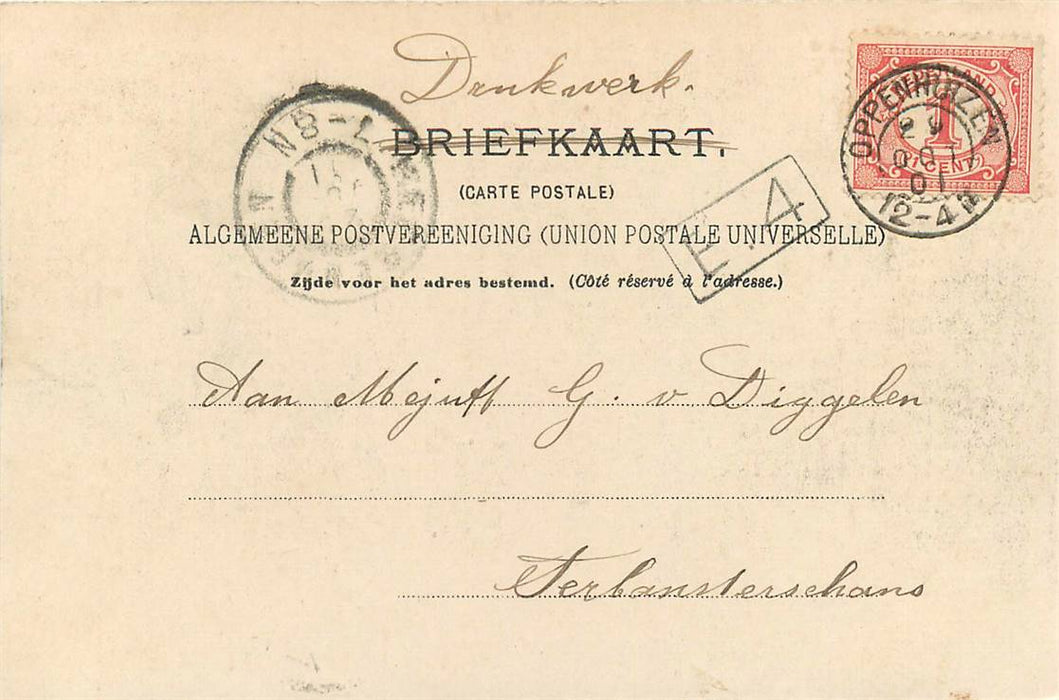 Drukwerk.
BRIEFKAART.
(CARTE POSTALE)
ALGEMEENE POSTVEREENIGING (UNION POSTALE UNIVERSELLE)
Zijde voor het adres bestemd. (Côté réservé à l'adresse.)
NEDERLAND
1
CENT
OPPENHUIZEN
29
OCT
01
12-4N
E.4
Aan Mejuff G. v Diggelen
Terbansterschans